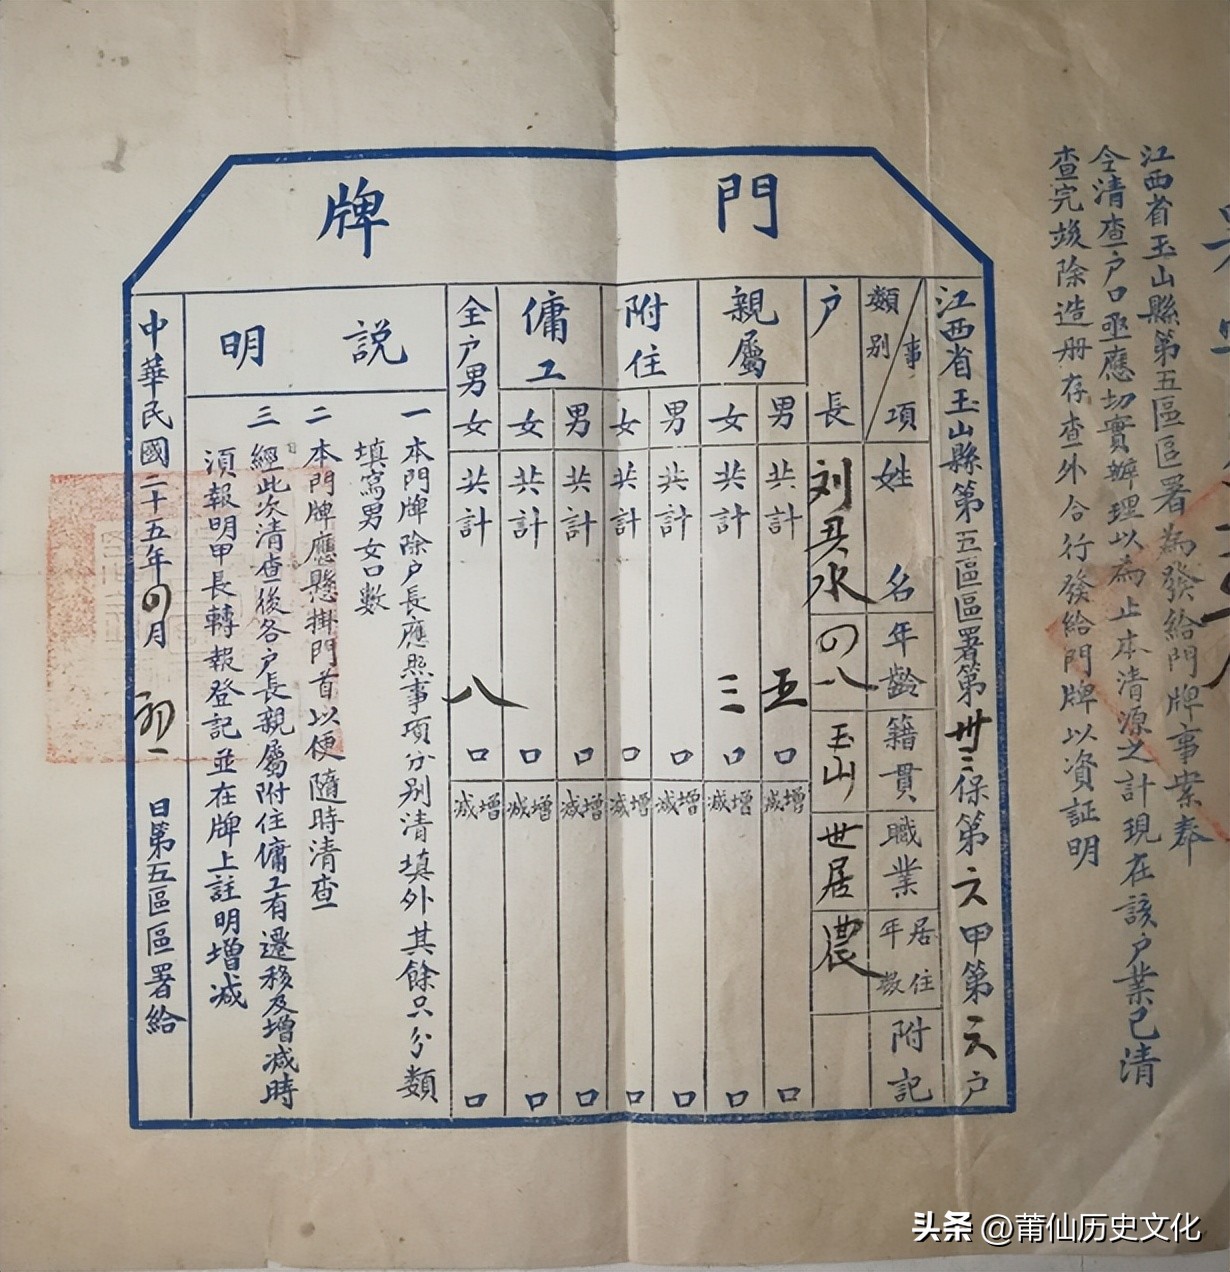 江西省玉山縣第五區區署為發給門牌事案奉
令清查户口亟應切實辦理以為止本清源之計現在該户業已清
查完竣除造册存查外合行發給門牌以資証明
門牌
江西省玉山縣第五區區署第卅三保第六甲第六户
類别 事項
姓名
年齡
籍貫
職業
居住年數
附記
户長
刘 水
四八
玉山
世居
農
親屬
男 共計 五 口 增減 口
女 共計 三 口 增減 口
附住
男 共計 口 增減 口
女 共計 口 增減 口
傭工
男 共計 口 增減 口
女 共計 口 增減 口
全户男女 共計 八 口 增減 口
説明
一 本門牌除户長應照事項分别清填外其餘只分類
填寫男女口數
二 本門牌應懸掛門首以便隨時清查
三 經此次清查後各户長親屬附住傭工有遷移及增减時
須報明甲長轉報登記並在牌上註明增减
中華民國二十五年四月初一日第五區區署給
头条 @莆仙历史文化